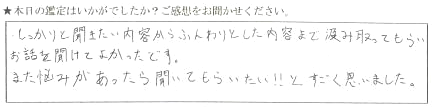 ★本日の鑑定はいかがでしたか？ご感想をお聞かせください。
しっかりと聞きたい内容からふんわりとした内容まで汲み取ってもらい
お話を聞けてよかったです。
また悩みがあったら聞いてもらいたい!!とすごく思いました。